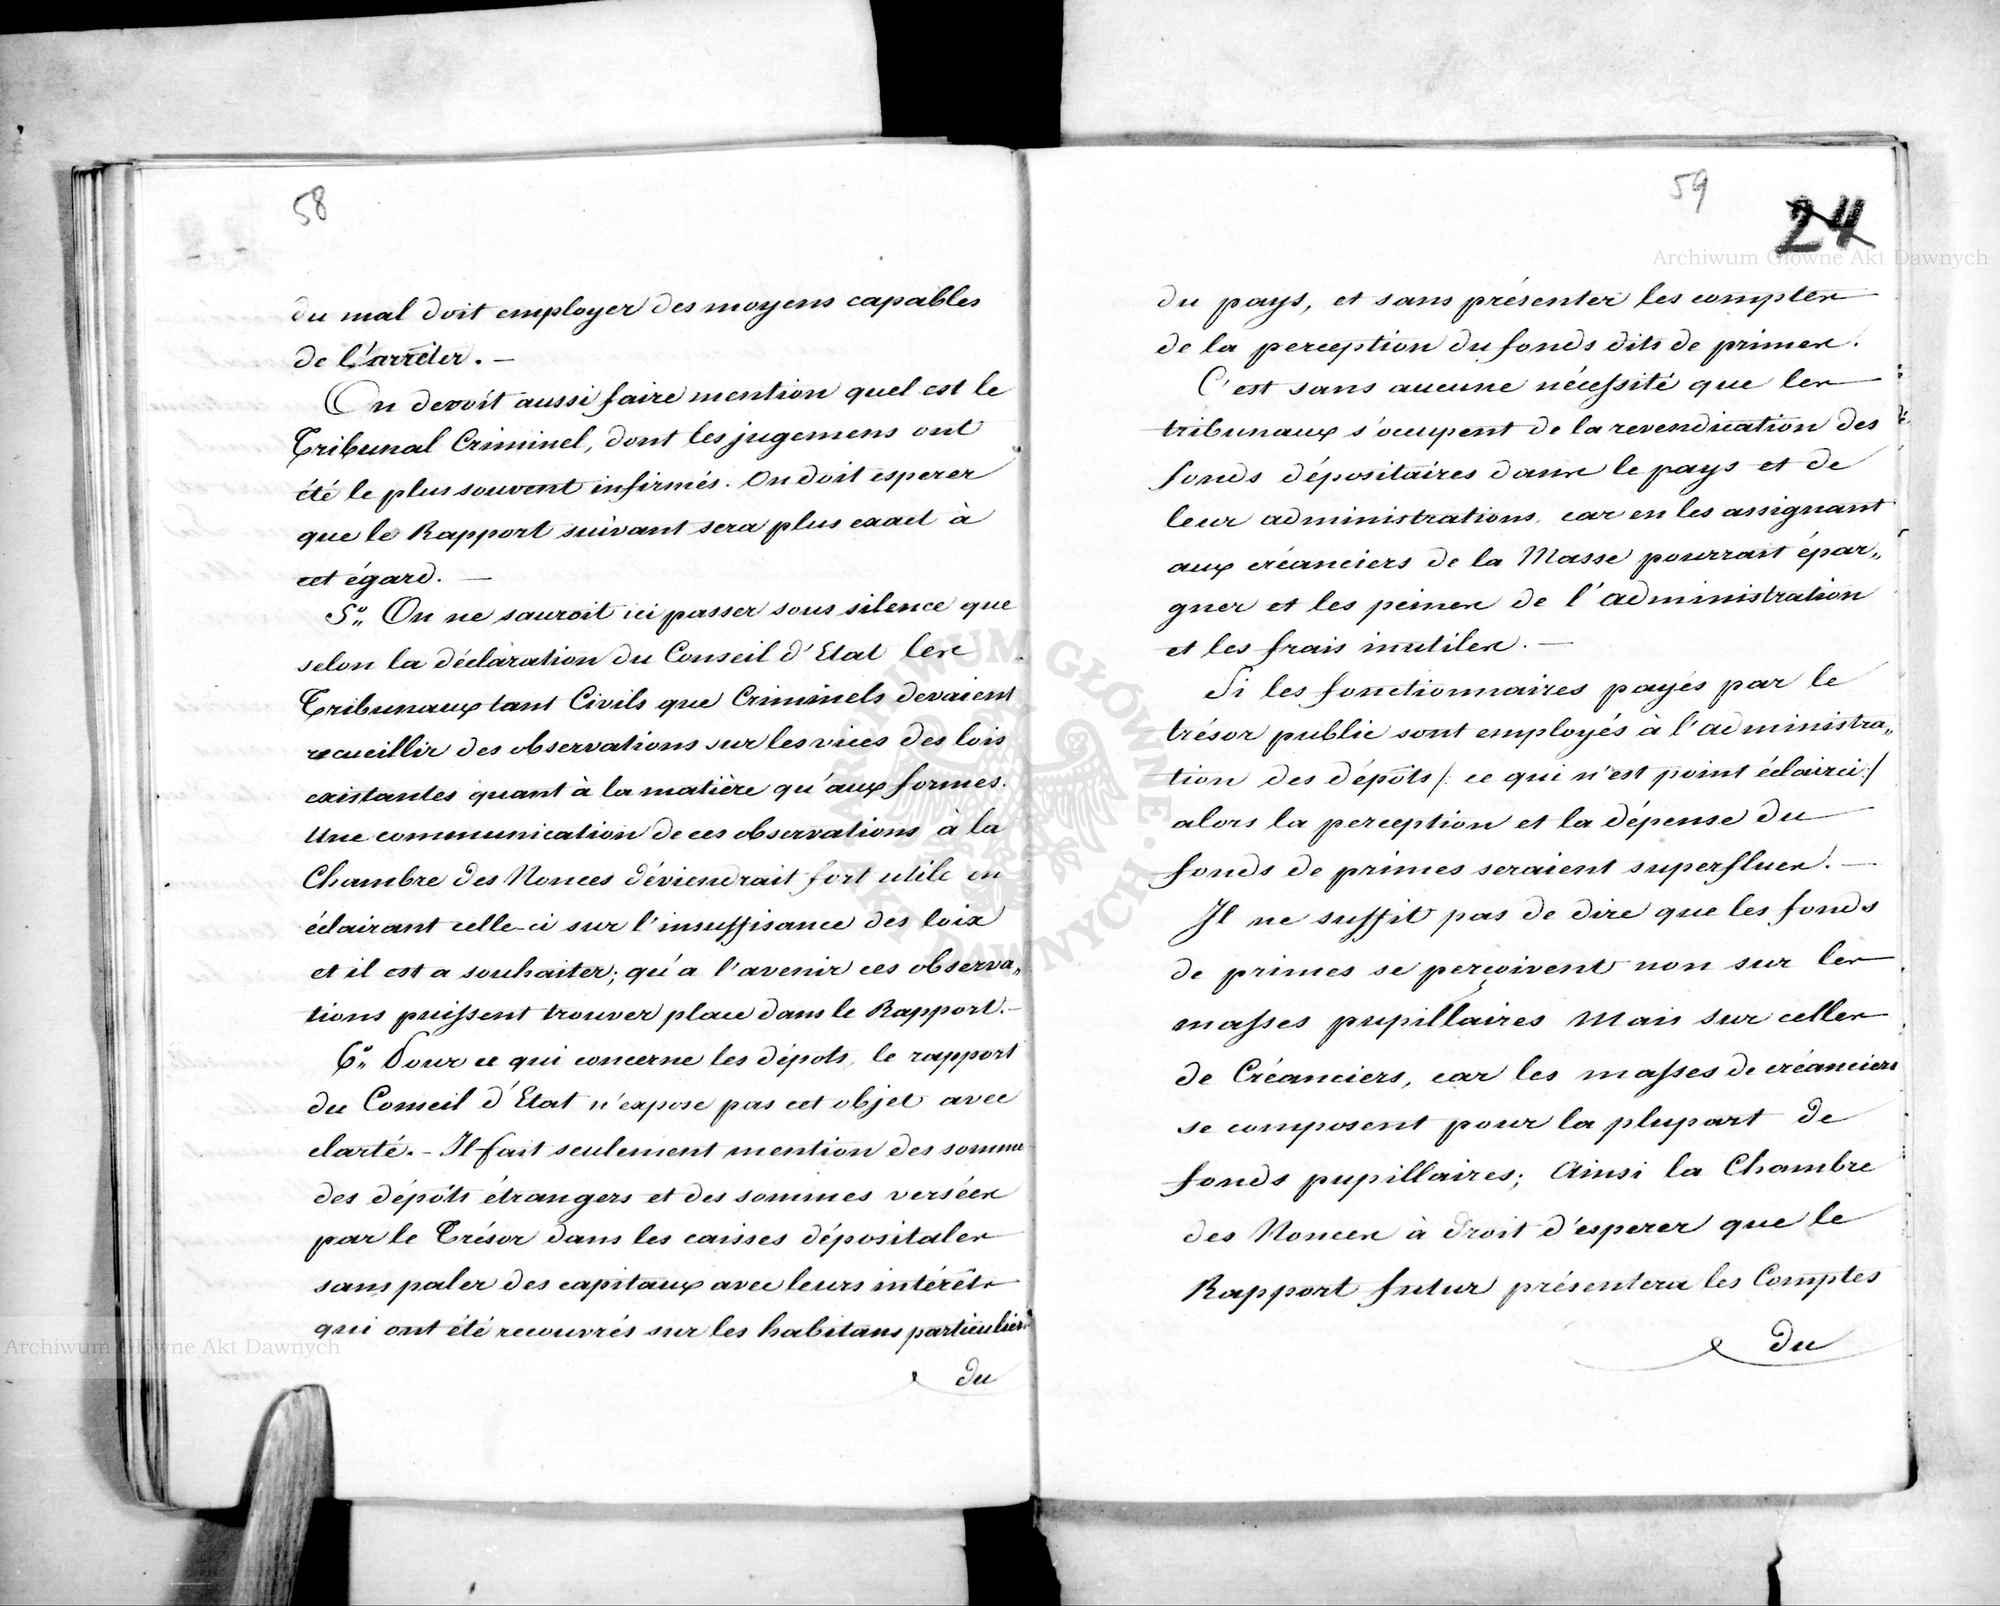 58
du mal doit employer des moyens capables
de l'arrêter. —
On devoit aussi faire mention quel est le
Tribunal Criminel, dont les jugemens ont
été le plus souvent infirmés. On doit esperer
que le Rapport suivant sera plus exact à
cet égard. —
5°„ On ne sauroit ici passer sous silence que
selon la déclaration du Conseil d'Etat les
Tribunaux tant Civils que Criminels devaient
recueillir des observations sur les vices des lois
existantes quant à la matière qu'aux formes.
Une communication de ces observations à la
Chambre des Nonces déviendrait fort utile en
éclairant celle-ci sur l'insuffisance des loix
et il est a souhaiter; qu'a l'avenir ces observa„
tions puissent trouver place dans le Rapport. —
6°„ Pour ce qui concerne les dépots, le rapport
du Conseil d'Etat n'expose pas cet objet avec
clarté. – Il fait seulement mention des somme
des dépôts étrangers et des sommes versées
par le Trésor dans les caisses dépositales
sans paler des capitaux avec leurs intérêts
qui ont été recouvrés sur les habitans particuliers
du
59
24
du pays, et sans présenter les comptes
de la perception du fonds dits de primes.
C'est sans aucune nécessité que les
tribunaux s'occupent de la revendication des
fonds dépositaires dans le pays et de
leur administrations, car en les assignant
aux créanciers de la Masse pourrait épar„
gner et les peines de l'administration
et les frais inutiles. —
Si les fonctionnaires payés par le
trésor public sont employés à l'administra„
tion des dépôts /: ce qui n'est point éclairci :/
alors la perception et la dépense du
fonds de primes seraient superflues. —
Il ne suffit pas de dire que les fonds
de primes se perçoivent non sur les
masses pupillaires mais sur celles
de Créanciers, car les masses de créanciers
se composent pour la plupart de
fonds pupillaires; Ainsi la Chambre
des Nonces à droit d'esperer que le
Rapport futur présentera les Comptes
du
Archiwum Główne Akt Dawnych
Archiwum Główne Akt Dawnych
ARCHIWUM GŁÓWNE AKT DAWNYCH